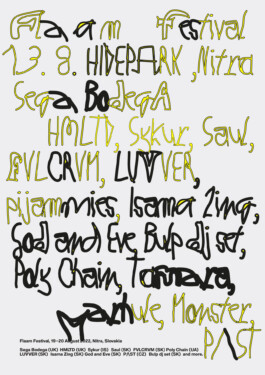 Flaam Festival
13. 8. HIDEPARK, Nitra
Sega Bodega
HMLTD, Sykur, Saul,
PVLCRVM, LUVVER,
pijammies, Isama Zing,
God and Eve, Bulp dj set,
Poly Chain, Tamara,
Marhule, Monster,
P/\ST
Flaam Festival, 12–20 August 2022, Nitra, Slovakia
Sega Bodega (UK) HMLTD (UK) Sykur (IS) Saul (SK) PVLCRVM (SK) Poly Chain (UA)
LUVVER (SK) Isama Zing (SK) God and Eve (SK) P/\ST (CZ) Bulp dj set (SK) and more.